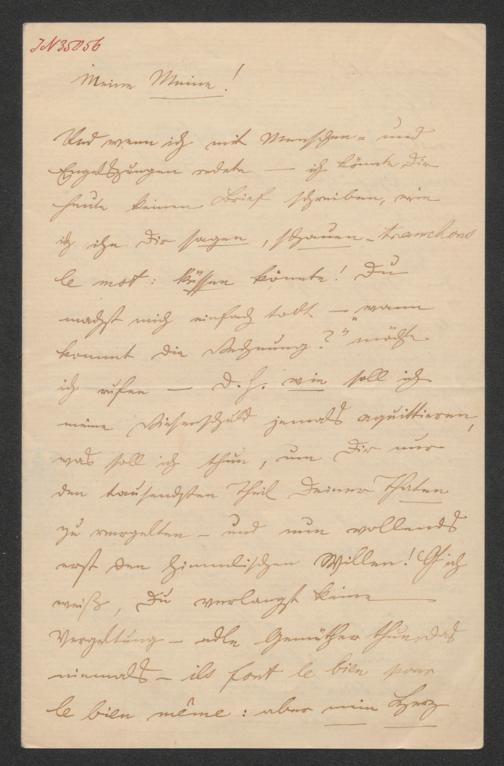 JN 35056
Meine Meine!
Und wenn ich mit Menschen- und
Engelszungen redete — ich könnte Dir
heute keinen Brief schreiben, wie
ich ihn Dir sagen, schauen - tranchons
le mot: küssen könnte! Du
machst mich einfach todt — "wann
kommt die Rechnung?" möchte
ich rufen — d. h. wie soll ich
meine Riesenschuld jemals aquittieren,
was soll ich thun, um Dir nur
den tausendsten Theil Deiner Thaten
zu vergelten - und nun vollends
erst den himmlischen Willen! O ich
weiß, Du verlangst keine
Vergeltung - edle Gemüther thun das
niemals - ils font le bien pour
le bien même: aber mein Herz